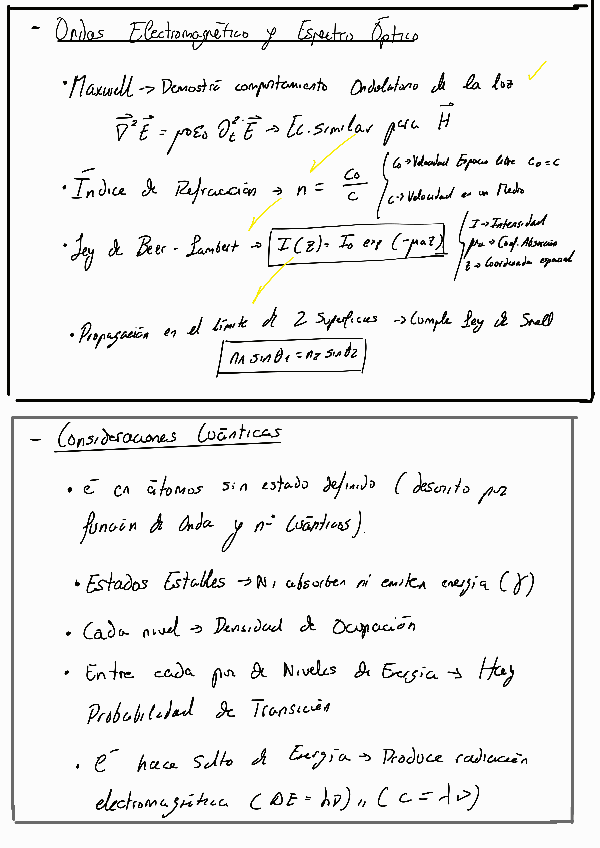 - Ondas Electromagnético y Espectro Óptico
· Maxwell → Demostró comportamiento Ondulatorio de la luz
∇⃗²E⃗ = μ0ε0 ∂t² E⃗ → Ec. similar para H⃗
· Índice de Refracción → n = C0/C { C0 → Velocidad Espacio Libre C0 = c
C → Velocidad en un Medio
· Ley de Beer - Lambert → I(z) = I0 exp(-μa z) { I → Intensidad
μa → Coef. Absorción
z → Coordenada espacial
· Propagación en el límite de 2 Superficies → Cumple Ley de Snell
n1 sin θ1 = n2 sin θ2
- Consideraciones Cuánticas
· e⁻ en átomos sin estado definido (descrito por
función de Onda y nº Cuánticos).
· Estados Estables → Ni absorben ni emiten energía (γ)
· Cada nivel → Densidad de Ocupación
· Entre cada par de Niveles de Energía → Hay
Probabilidad de Transición
· e⁻ hace Salto de Energía → Produce radiación
electromagnética (ΔE = hν) ,, (c = λν)